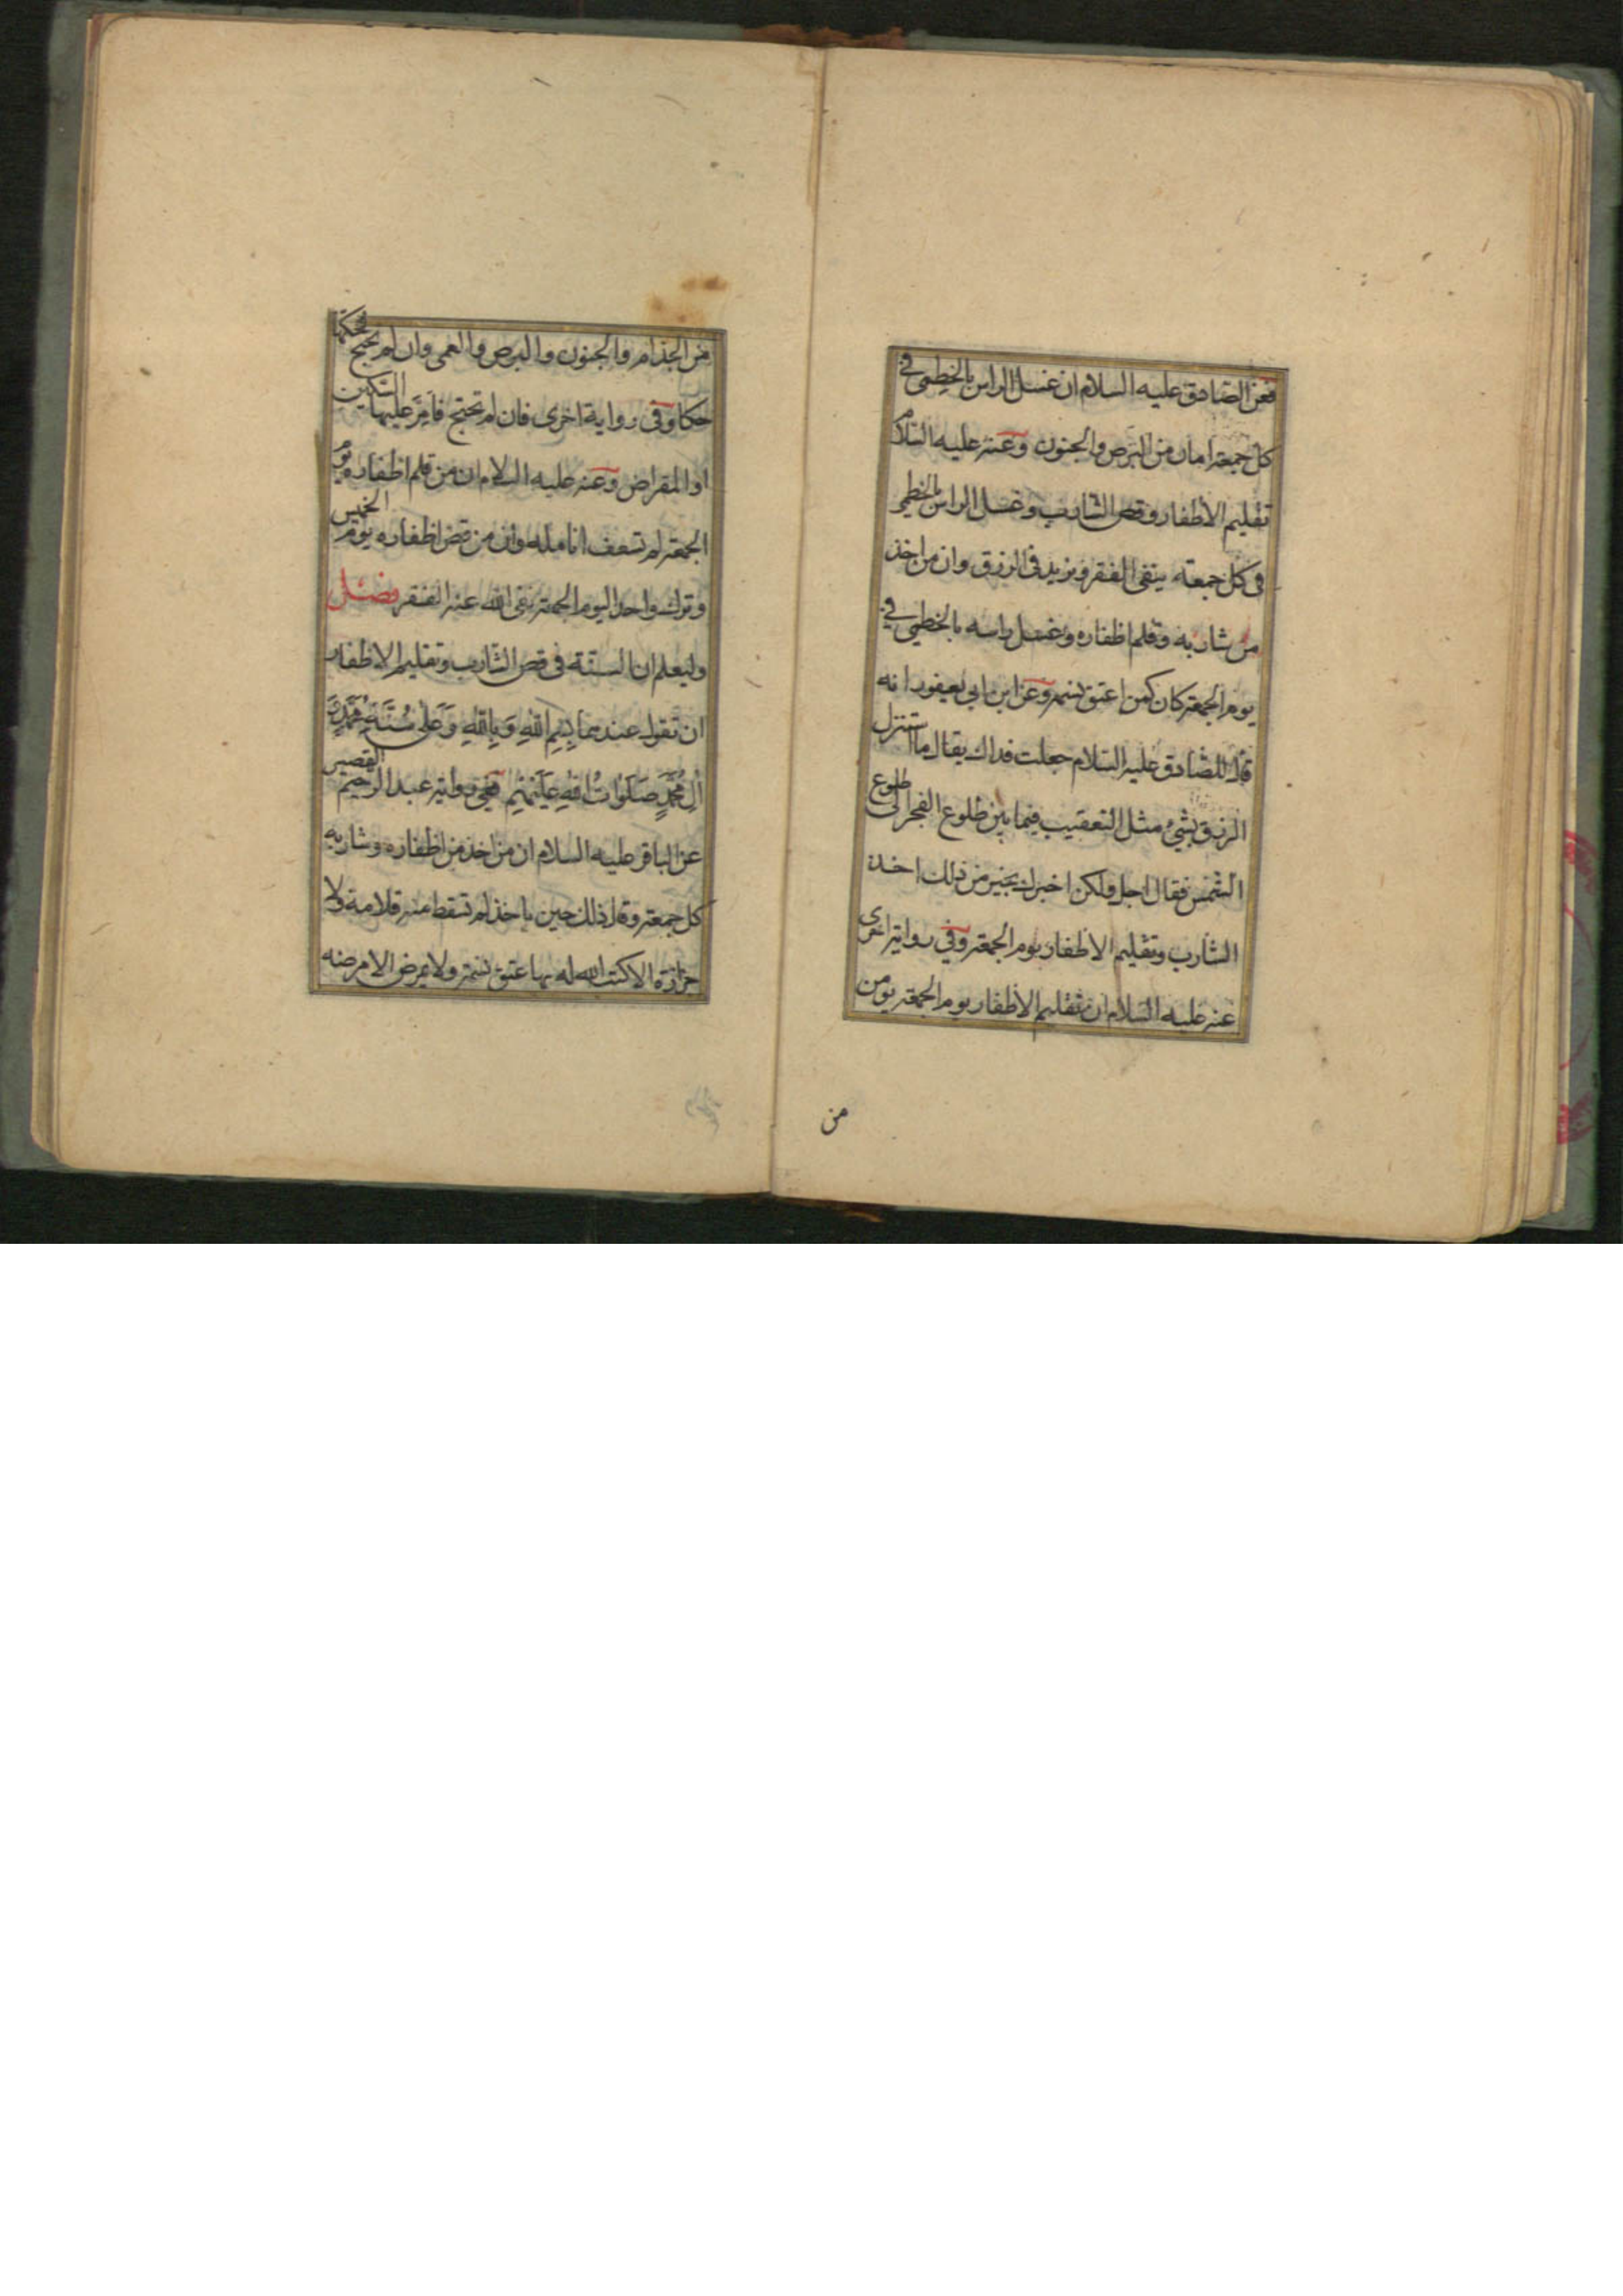 فعن الصادق عليه السلام ان غسل الراس بالخطمى فى
كل جمعة امان من البرص والجنون وعنه عليه السلام
تقليم الاظفار وقص الشارب وغسل الراس بالخطمى
فى كل جمعة ينقى الفقر ويزيد فى الرزق وان من اخذ
من شاربه وقلم اظفاره وغسل راسه بالخطمى فى
يوم الجمعة كان كمن اعتق نسمة وعن ابن ابى يعفور انه
قال للصادق عليه السلام جعلت فداك يقال ما استنزل
الرزق بشئ مثل التعقيب فيما بين طلوع الفجر الى طلوع
الشمس فقال اجل ولكن اخبرك بخير من ذلك اخذ
الشارب وتقليم الاظفار يوم الجمعة وفى رواية اخرى
عنه عليه السلام ان تقليم الاظفار يوم الجمعة يومن
من
من الجذام والجنون والبرص والعمى وان لم تحتج فحكها
حكا وفى رواية اخرى فان لم تحتج فامر عليها السكين
او المقراض وعنه عليه السلام ان من قلم اظفاره يوم
الجمعة لم تسعف انامله وان من قص اظفاره يوم الخميس
وترك واحدا ليوم الجمعة نفى الله عنه الفقر فصل
وليعلم ان السنة فى قص الشارب وتقليم الاظفار
ان تقول عندهما بِسْمِ اللهِ وَبِاللهِ وَعَلى سُنَّةِ مُحَمَّدٍ وَ
الِ مُحَمَّدٍ صَلَوَاتُ اللهِ عَلَيْهِمْ ففى رواية عبد الرحيم القصير
عن الباقر عليه السلام ان من اخذ من اظفاره وشاربه
كل جمعة وقال ذلك حين ياخذ لم تسقط منه قلامة ولا
جزازة الا كتب الله له بها عتق نسمة ولا يمرض الا مرضه